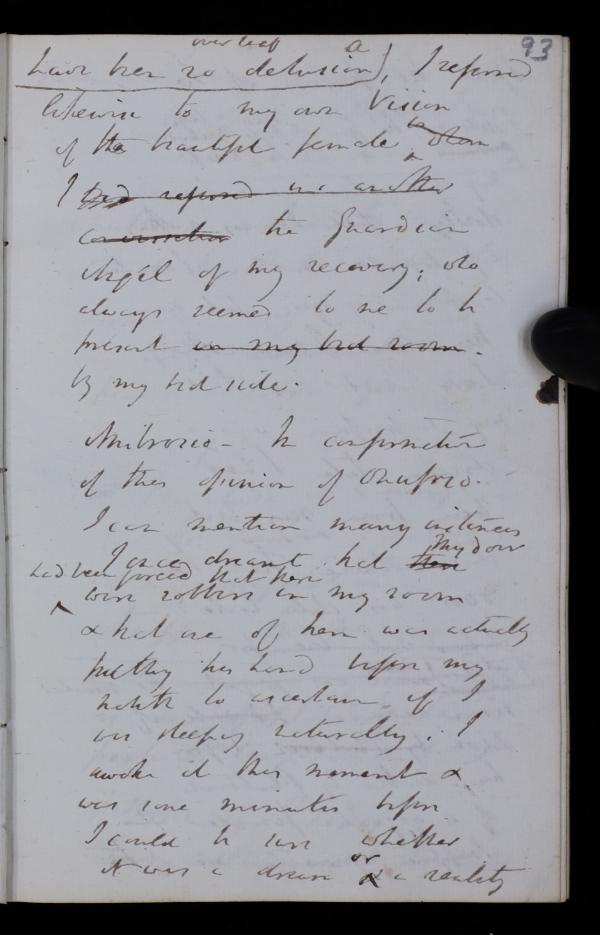 93
over leaf a
have been no delusion), I referred
likewise to my own Vision
of the beautiful female, whom
I had referred in another
conversation the Guardian
Angel of my recovery; who
always seemed to me to be
present in my bed room.
by my bed side.
Ambrosio - In confirmation
of this opinion of Onufrio.
I can mention many instances
My door
I once dreamt that there
had been forced that there
were robbers in my room
& that one of them was actually
putting his hand before my
mouth to ascertain if I
was sleeping naturally. I
awoke at this moment &
was some minutes before
I could be sure whether
it was a dream or a reality